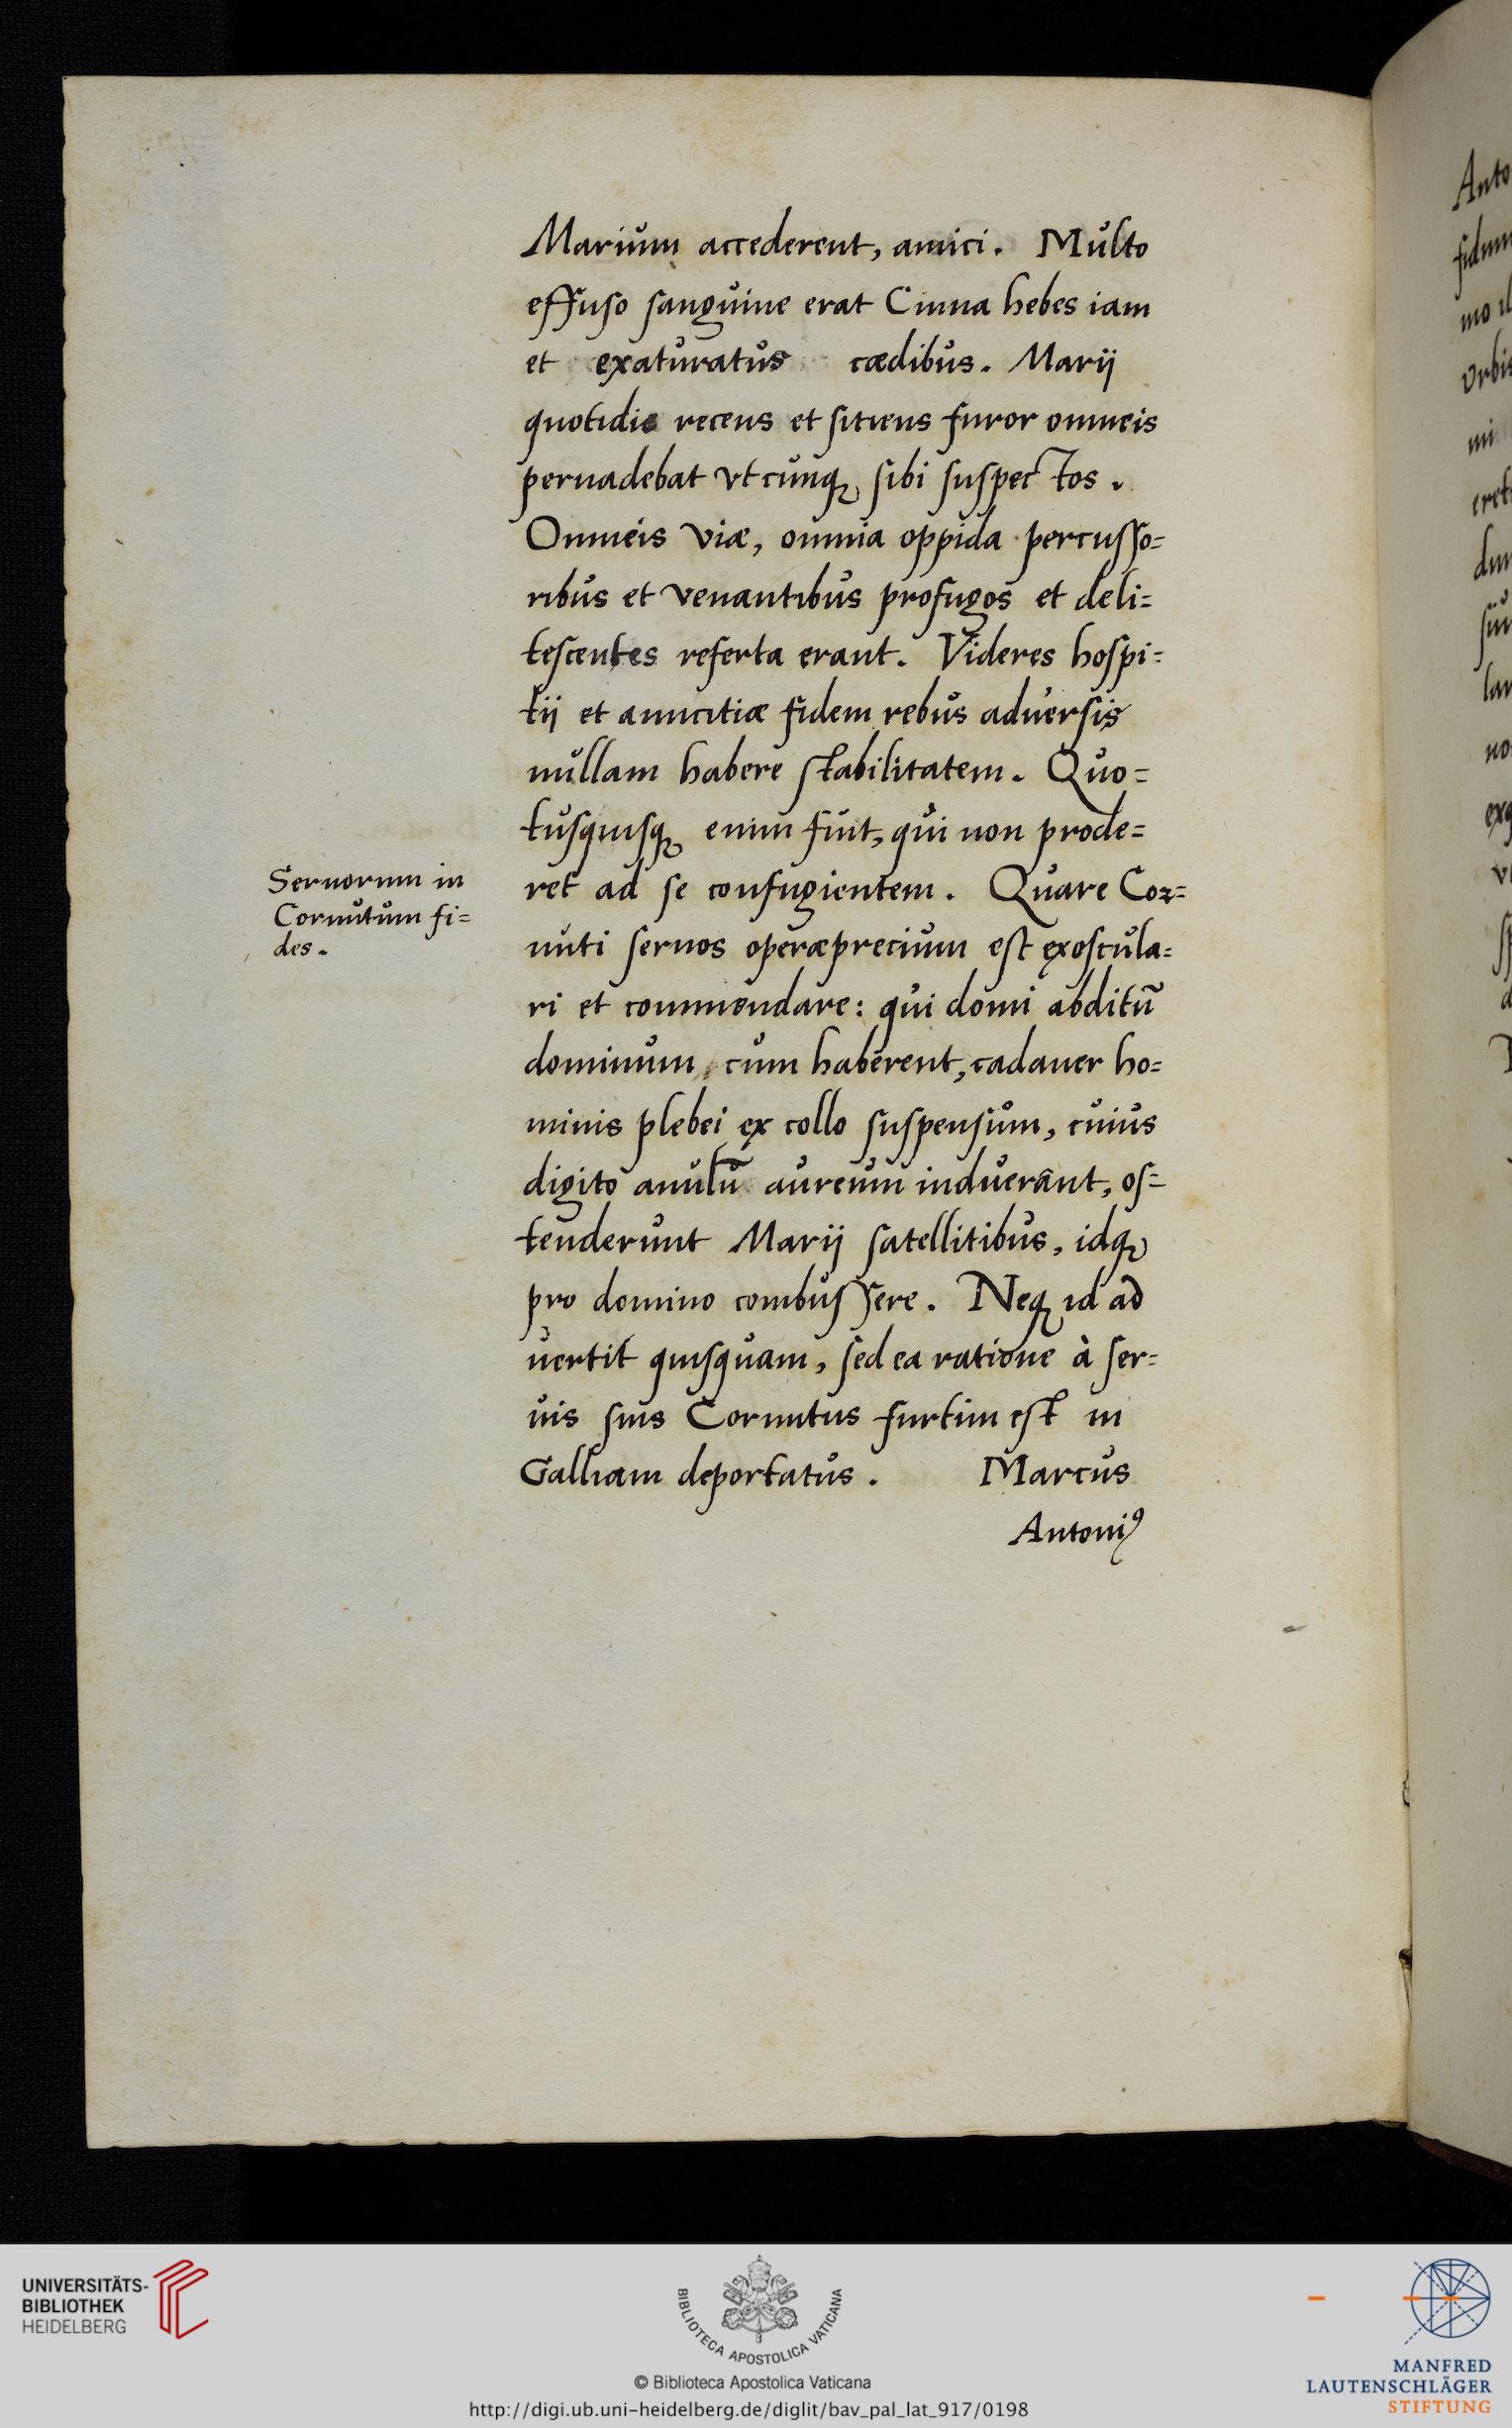 Marium accederent, amici. Multo
effuso sanguine erat Cinna hebes iam
et exaturatus cædibus. Marij
quotidie recens et sitiens furor omneis
peruadebat vtcunq; sibi suspectos.
Omneis viæ, omnia oppida percusso=
ribus et venantibus profugos et deli=
tescentes referta erant. Videres hospi=
tij et amicitiæ fidem rebus aduersis
nullam habere stabilitatem. Quo=
tusquisq; enim fuit, qui non prode=
ret ad se confugientem. Quare Cor=
nuti seruos operæprecium est exoscula=
ri et commendare: qui domi abditū
dominum cum haberent, cadauer ho=
minis plebei ex collo suspensum, cuius
digito anulū aureum induerant, os=
tenderunt Marij satellitibus, idq;
pro domino combussere. Neq; id ad
uertit quisquam, sed ea ratione à ser=
uis suis Cornutus furtim est in
Galliam deportatus. Marcus
Antoniꝰ
Seruorum in
Cornutum fi=
des.
Anto
fidum
mo il
Vrbis
UNIVERSITÄTS-
BIBLIOTHEK
HEIDELBERG
BIBLIOTECA APOSTOLICA VATICANA
© Biblioteca Apostolica Vaticana
http://digi.ub.uni-heidelberg.de/diglit/bav_pal_lat_917/0198
MANFRED
LAUTENSCHLÄGER
STIFTUNG